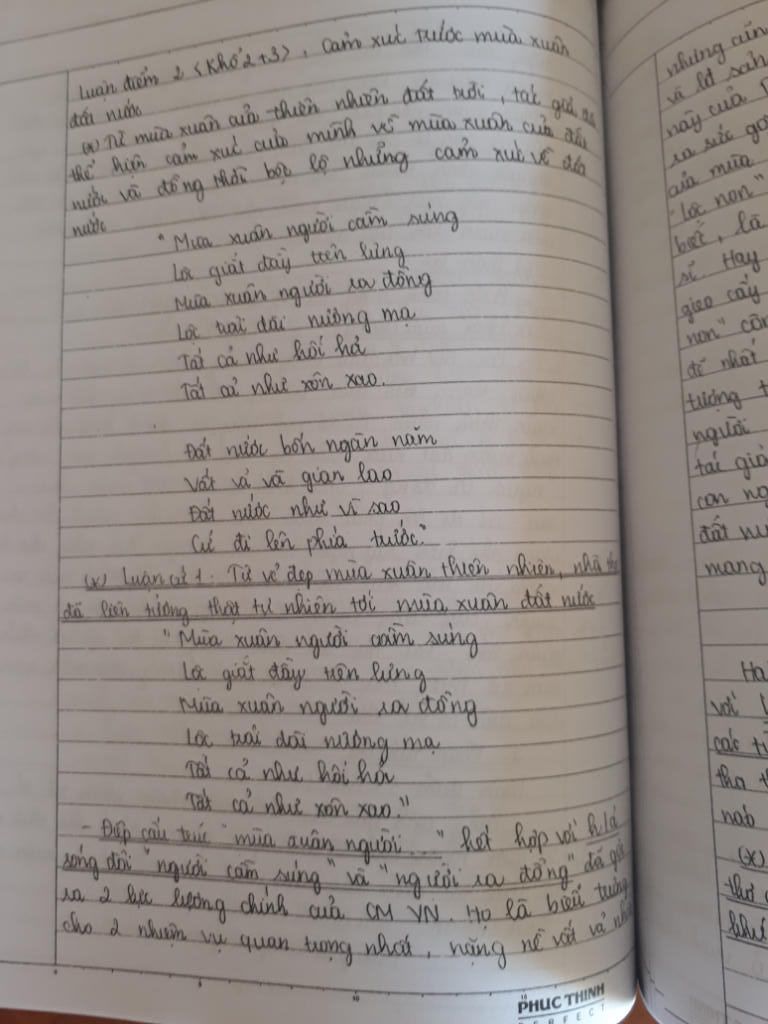 Luận điểm 2 (Khổ 2+3), Cảm xúc trước mùa xuân
đất nước
(*) Từ mùa xuân của thiên nhiên đất trời, tác giả đã
thể hiện cảm xúc của mình về mùa xuân của đất
nước và đồng thời bộc lộ những cảm xúc về đất
nước
"Mùa xuân người cầm súng
Lộc giắt đầy trên lưng
Mùa xuân người ra đồng
Lộc trải dài nương mạ
Tất cả như hối hả
Tất cả như xôn xao.
Đất nước bốn ngàn năm
Vất vả và gian lao
Đất nước như vì sao
Cứ đi lên phía trước."
(*) Luận cứ 1: Từ vẻ đẹp mùa xuân thiên nhiên, nhà thơ
đã liên tưởng thật tự nhiên tới mùa xuân đất nước
"Mùa xuân người cầm súng
Lộc giắt đầy trên lưng
Mùa xuân người ra đồng
Lộc trải dài nương mạ
Tất cả như hối hả
Tất cả như xôn xao."
- Điệp cấu trúc "mùa xuân người..." kết hợp với h/ả
sóng đôi "người cầm súng" và "người ra đồng" đã gợi
ra 2 lực lượng chính của CM VN. Họ là biểu tượng
cho 2 nhiệm vụ quan trọng nhất, nặng nề vất vả nhất
PHUC THINH
PERFECT
những
và
này của
ra sức
của mùa
"lộc non"
biếc, là
sĩ. Hay
gieo cấy
non"
để nhất
tượng
người
tác giả
con
đất
mang
với
các từ
thơ
(*)
thơ